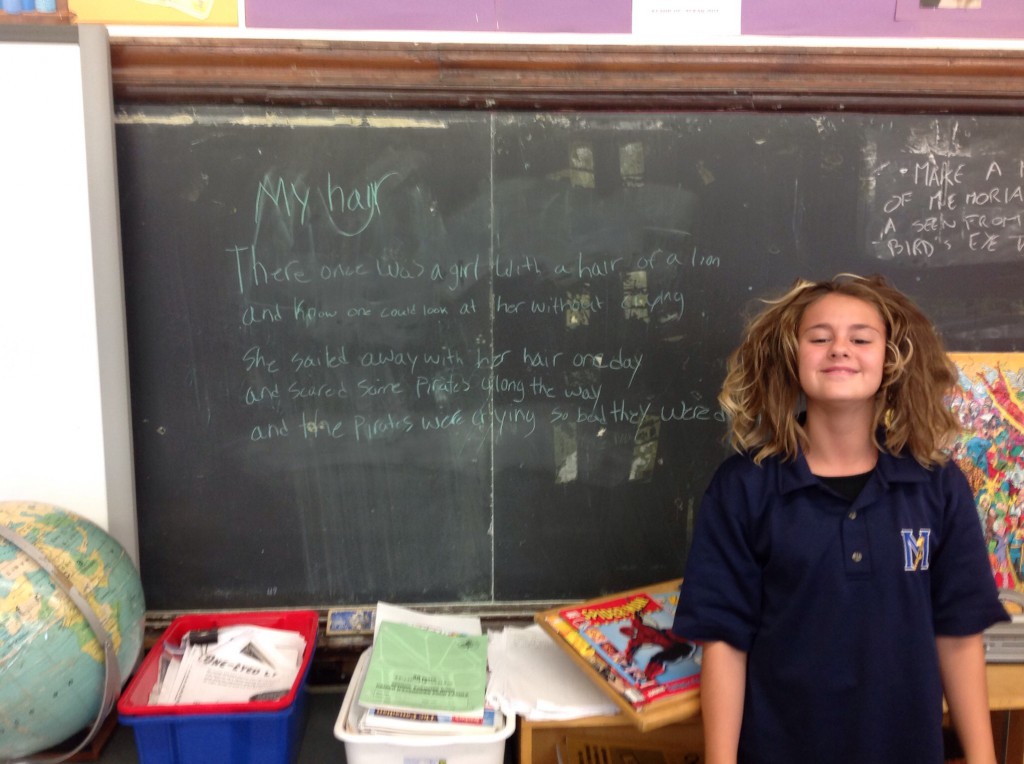 My hair
There once was a girl with a hair of a lion
and Know one could look at her without crying
She sailed away with her hair one day
and scared some Pirates along the way
and the Pirates were crying so bad they were
• MAKE A
OF MEMORIA
A SEEN FROM
BIRD'S EYE
M
ONE-EYED
SPIDER-MAN